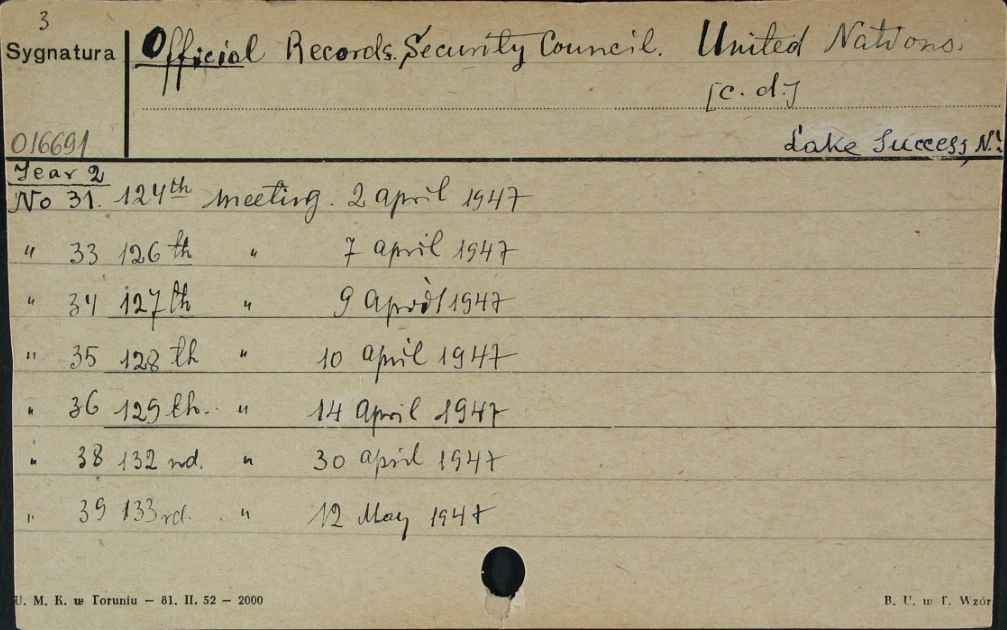 3
Sygnatura
Official Records. Security Council. United Nations.
[c. d.]
016691
Lake Success, N.
Year 2
No 31. 124th meeting. 2 april 1947
" 33 126th " 7 april 1947
" 34 127th " 9 April 1947
" 35 128th " 10 april 1947
" 36 129th. " 14 April 1947
" 38 132nd. " 30 april 1947
" 39 133rd. " 12 May 1947
U. M. K. w Toruniu — 81. II. 52 — 2000
B. U. w T. Wzór